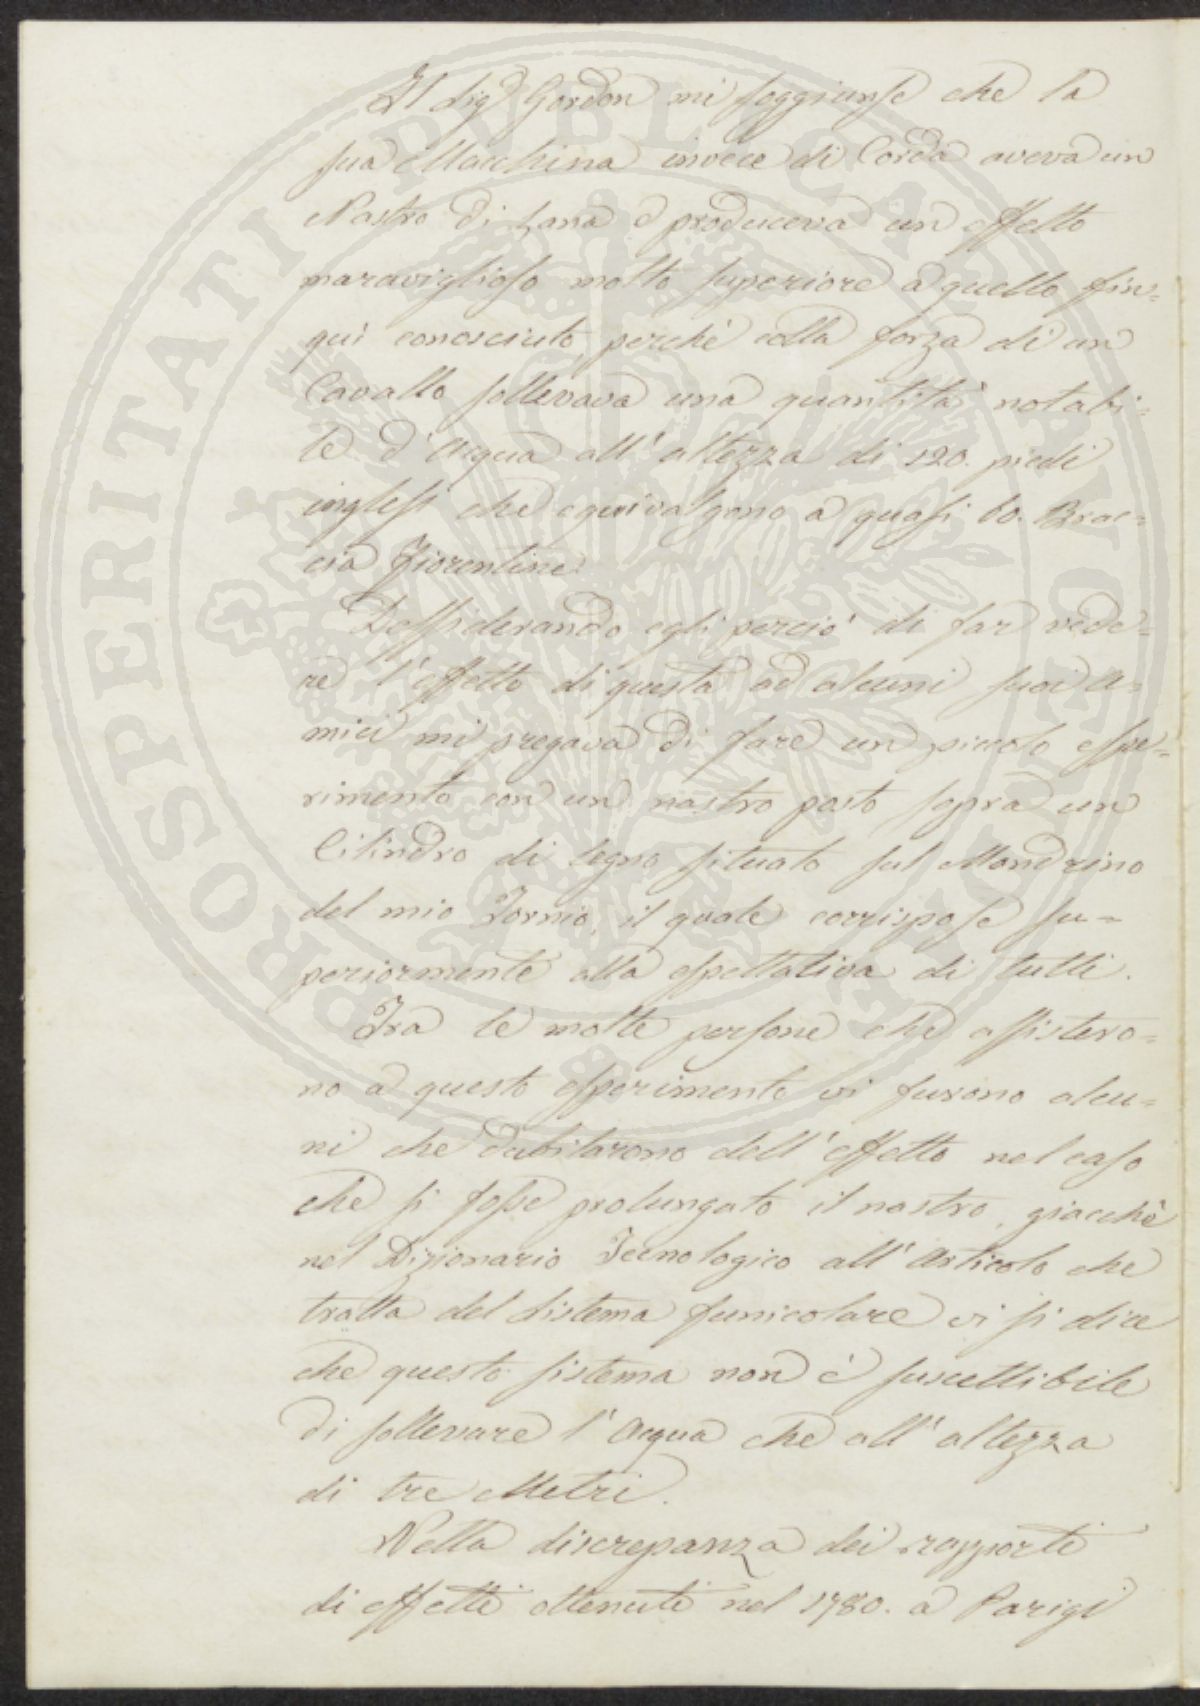 Il Sig.r Gordon mi soggiunse che la
sua Macchina invece di Corda aveva un
Nastro di Lana e produceva un effetto
maraviglioso molto superiore a quello fin=
quì conosciuto, perchè colla forza di un
Cavallo sollevava una quantità notabi=
le d'Acqua all'altezza di 120. piedi
inglesi che equivalgono a quasi 60. Brac=
cia Fiorentine.
Dessiderando egli perciò di far vede=
re l'effetto di questa ad alcuni suoi A=
mici mi pregava di fare un piccolo espe=
rimento con un nastro posto sopra un
Cilindro di legno situato sul Mandrino
del mio Tornio, il quale corrispose su=
periormente alla espettativa di tutti.
Tra le molte persone che assistero=
no a questo esperimento vi furono alcu=
ni che dubitarono dell'effetto nel caso
che si fosse prolungato il nastro, giacchè
nel Dizionario Tecnologico all'Articolo che
tratta del Sistema funicolare vi si dice
che questo sistema non è suscettibile
di sollevare l'Acqua che all'altezza
di tre Metri.
Nella discrepanza dei rapporti
di effetti ottenuti nel 1780. a Parigi
PROSPERITATI PUBLICAE